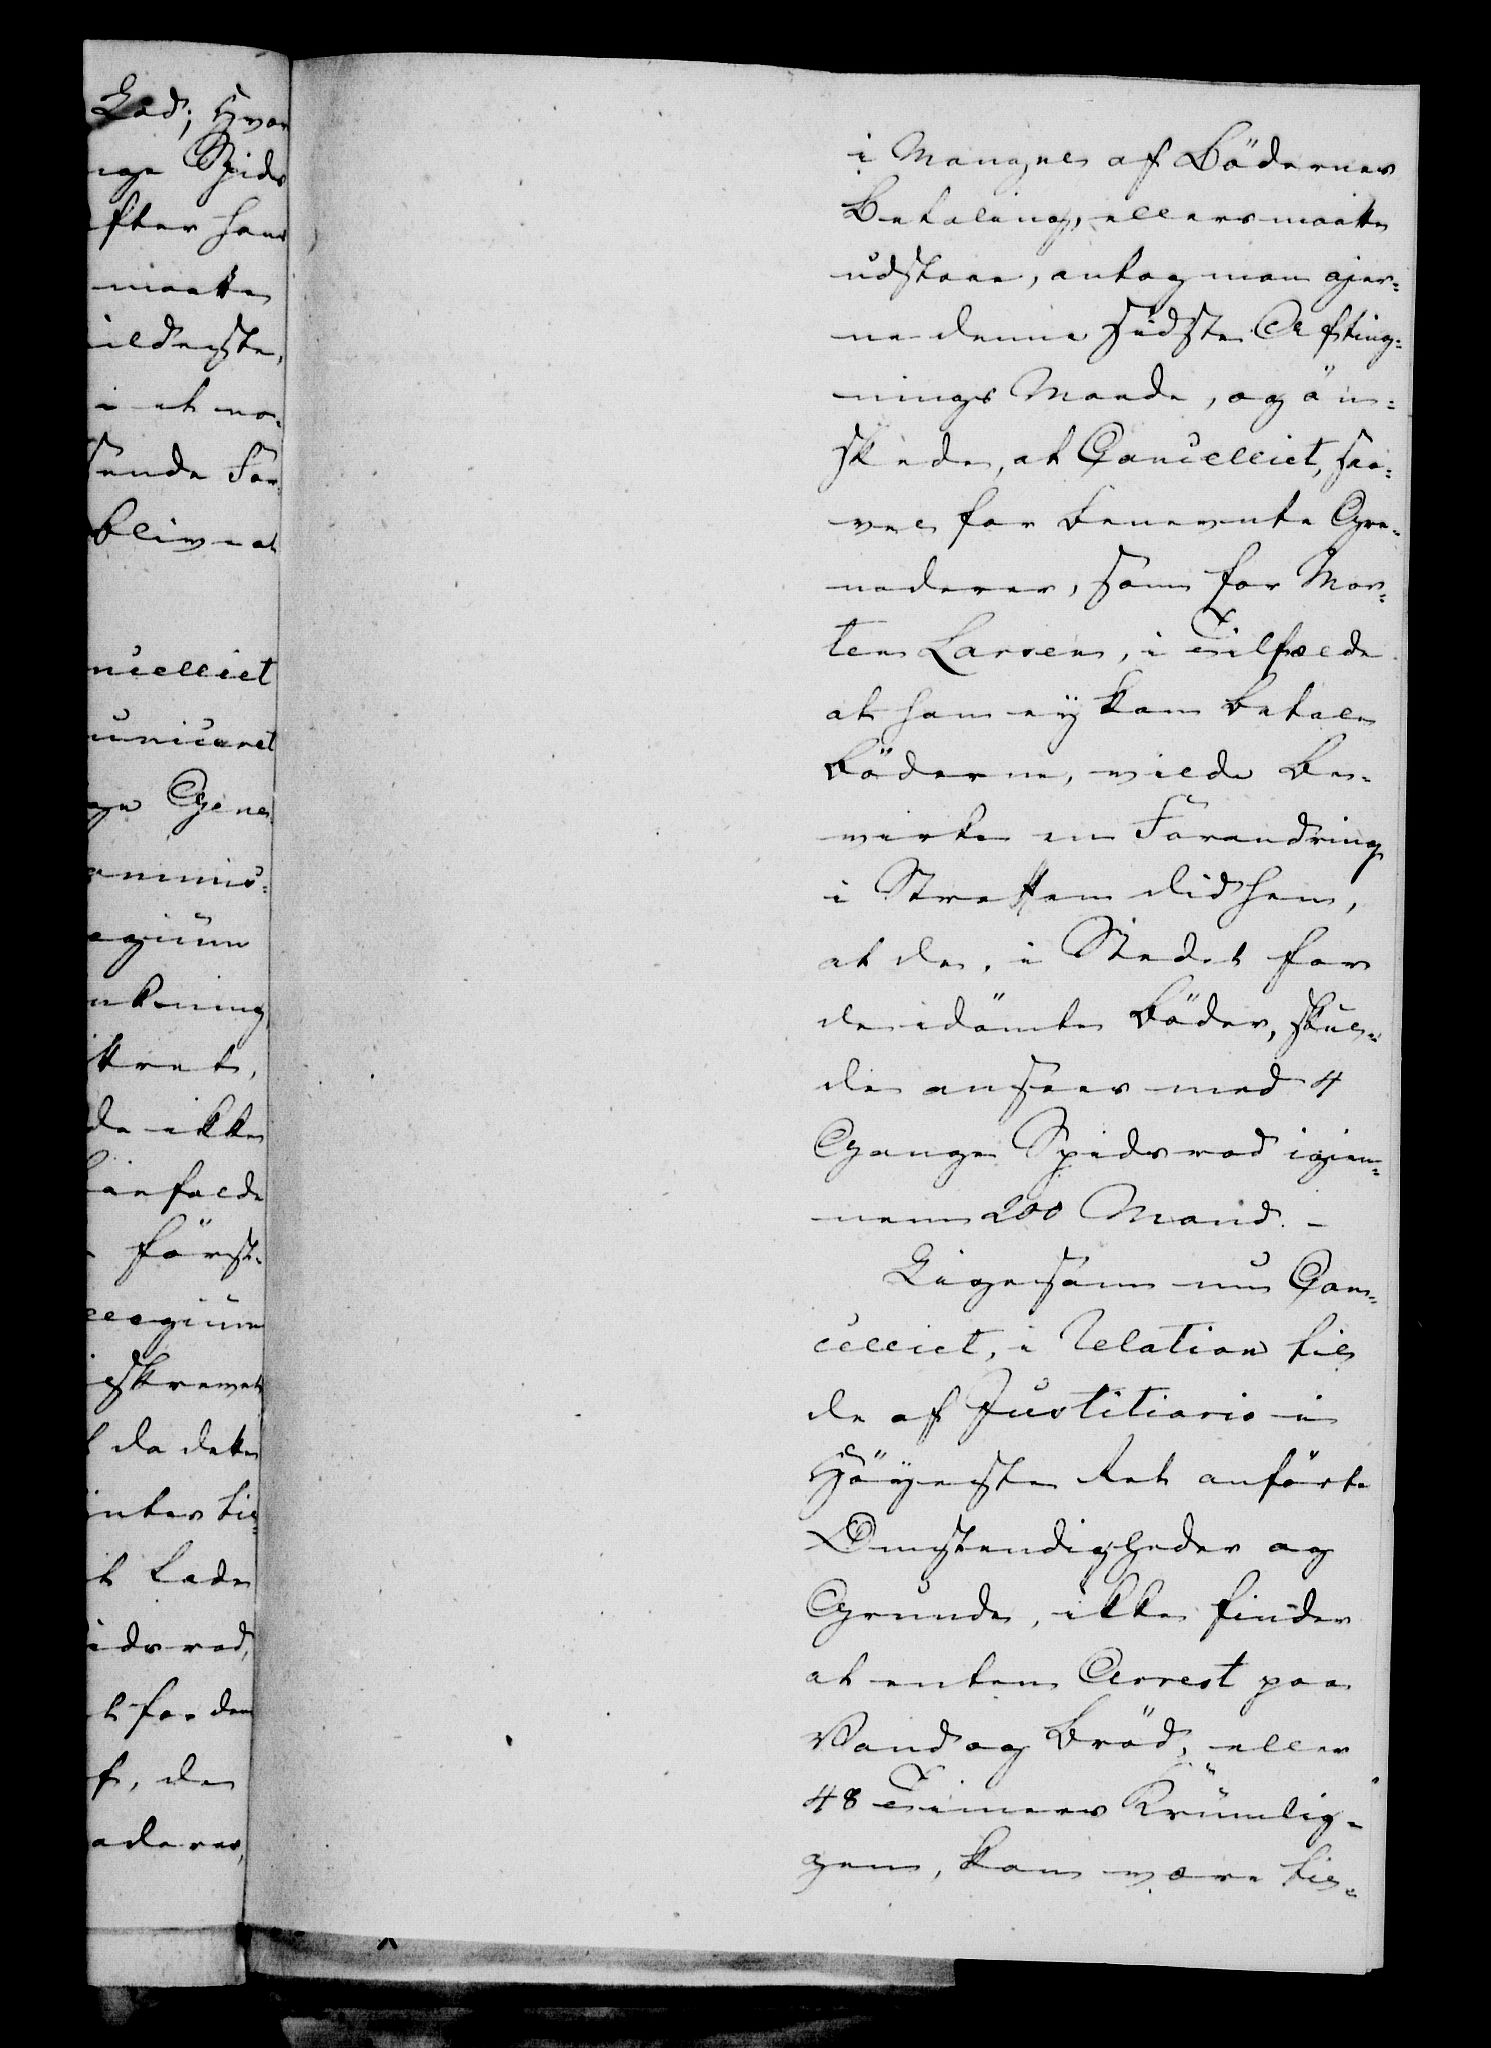 Lad; Hvor
nge Spids
fter hans
maatte
ildeste,
i et no-
sende For-
blive at
ncelliet
uniceret
ge Gene-
ommis-
egium
nkning
ttret,
de ikke
ianfalde
först-
llegium
iskrevet
da dette
inter til-
t Lade
idsrod,
t for den
f, de
aderer,
i Mangel af Bödernes
Betaling, ellers maatte
udstaae, antog man gjer-
ne denne sidste Afting-
nings Maade, og ön-
skede, at Cancelliet, saa-
vel for benevnte Gre-
naderer, som for Mor-
ten Larsen, i Tilfælde
at han ey kan betale
Böderne, vilde be-
virke en Forandring
i Straffen did hen,
at de, i Stedet for
de idömte Böder, skul-
de ansees med 4
Gange Spidsrod igien-
nem 200 Mand. -
Ligesom nu Can-
celliet, i Relation til
de af Justitiario i
Höyeste Ret anförte
Omstændigheder og
Grunde, ikke finder
at enten Arrest paa
Vand og Bröd, eller
48 Timers Krumlig-
gen, kan være til-